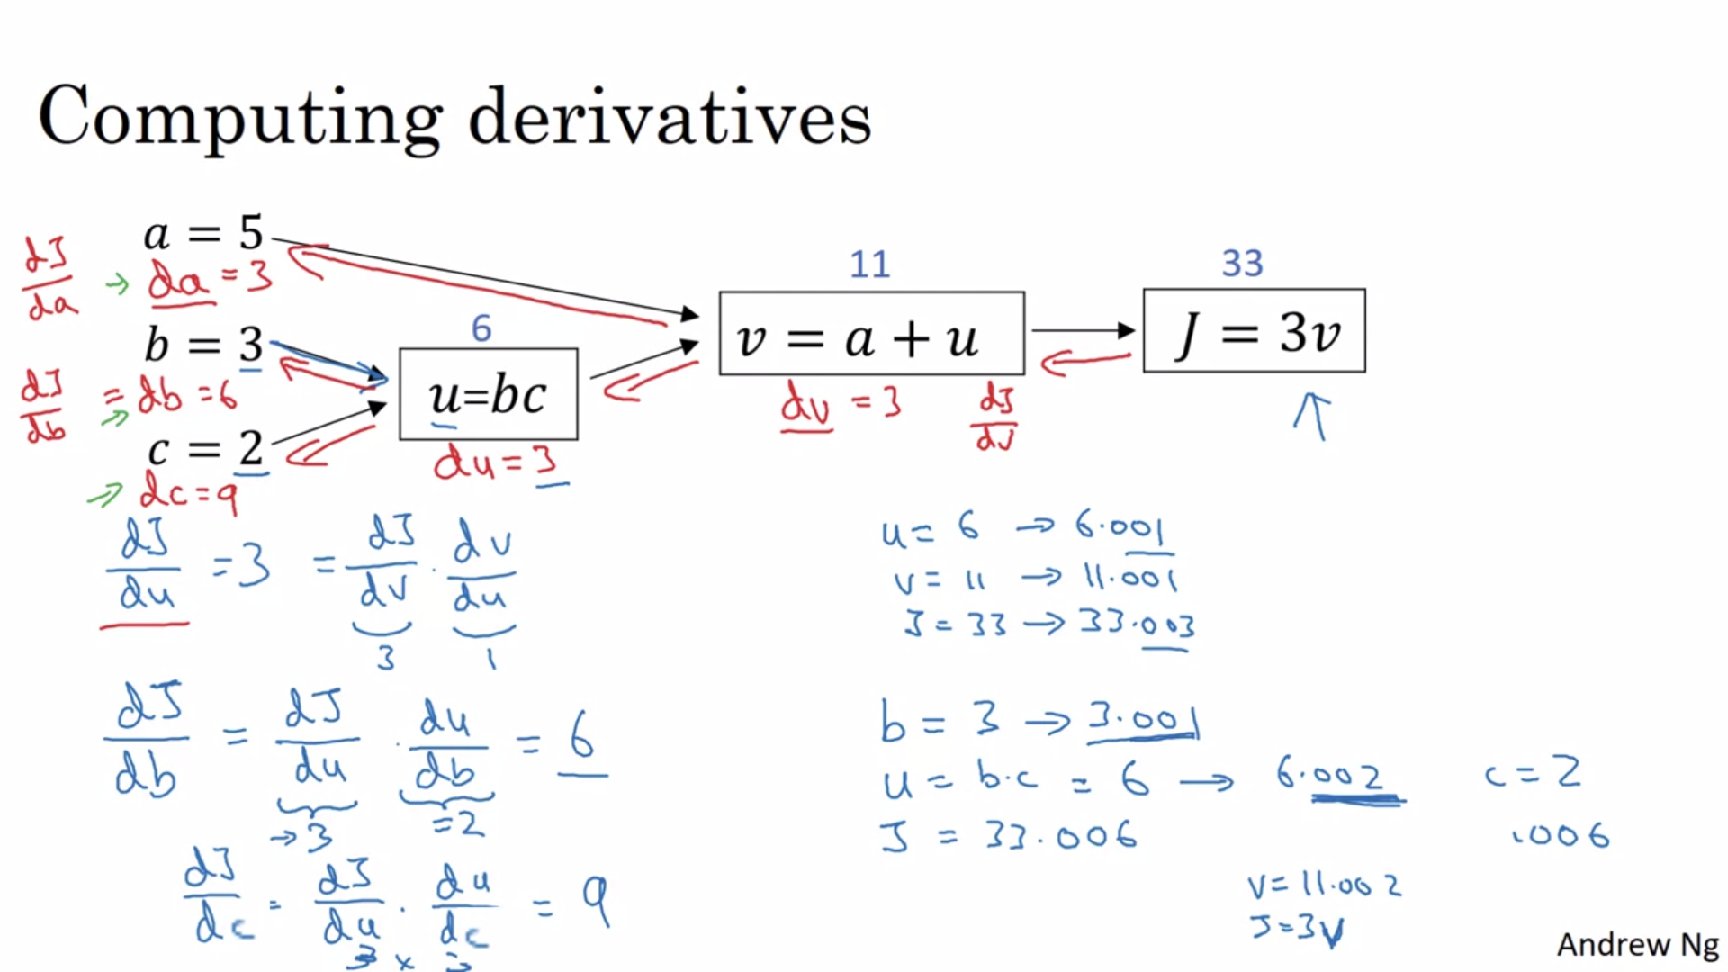 Computing derivatives
a = 5
dJ/da → da = 3
b = 3
dJ/db = db = 6
c = 2
→ dc = 9
6
u=bc
du = 3
11
v = a + u
dv = 3 dJ/dv
33
J = 3v
dJ/du = 3 = dJ/dv · dv/du
3 1
dJ/db = dJ/du · du/db = 6
→ 3 = 2
dJ/dc = dJ/du · du/dc = 9
3 × 3
u = 6 → 6.001
v = 11 → 11.001
J = 33 → 33.003
b = 3 → 3.001
u = b·c = 6 → 6.002 c = 2
J = 33.006 .006
v = 11.002
J = 3v
Andrew Ng